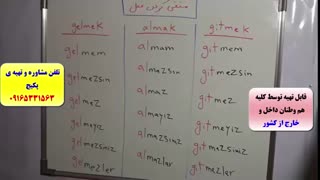 منفی کردن فعل
gelmek almak gitmek
gelmem almam gitmem
gelmezsin almazsin gitmezsin
gelmez almaz gitmez
gelmeyiz almayiz gitmeyiz
gelmezsiniz almazsiniz gitmezsiniz
gelmezler almazler gitmezler
تلفن مشاوره و تهیه ی
پکیج
۰۹۱۶۵۳۳۱۵۶۳
قابل تهیه توسط کلیه
هم وطنان داخل و
خارج از کشور